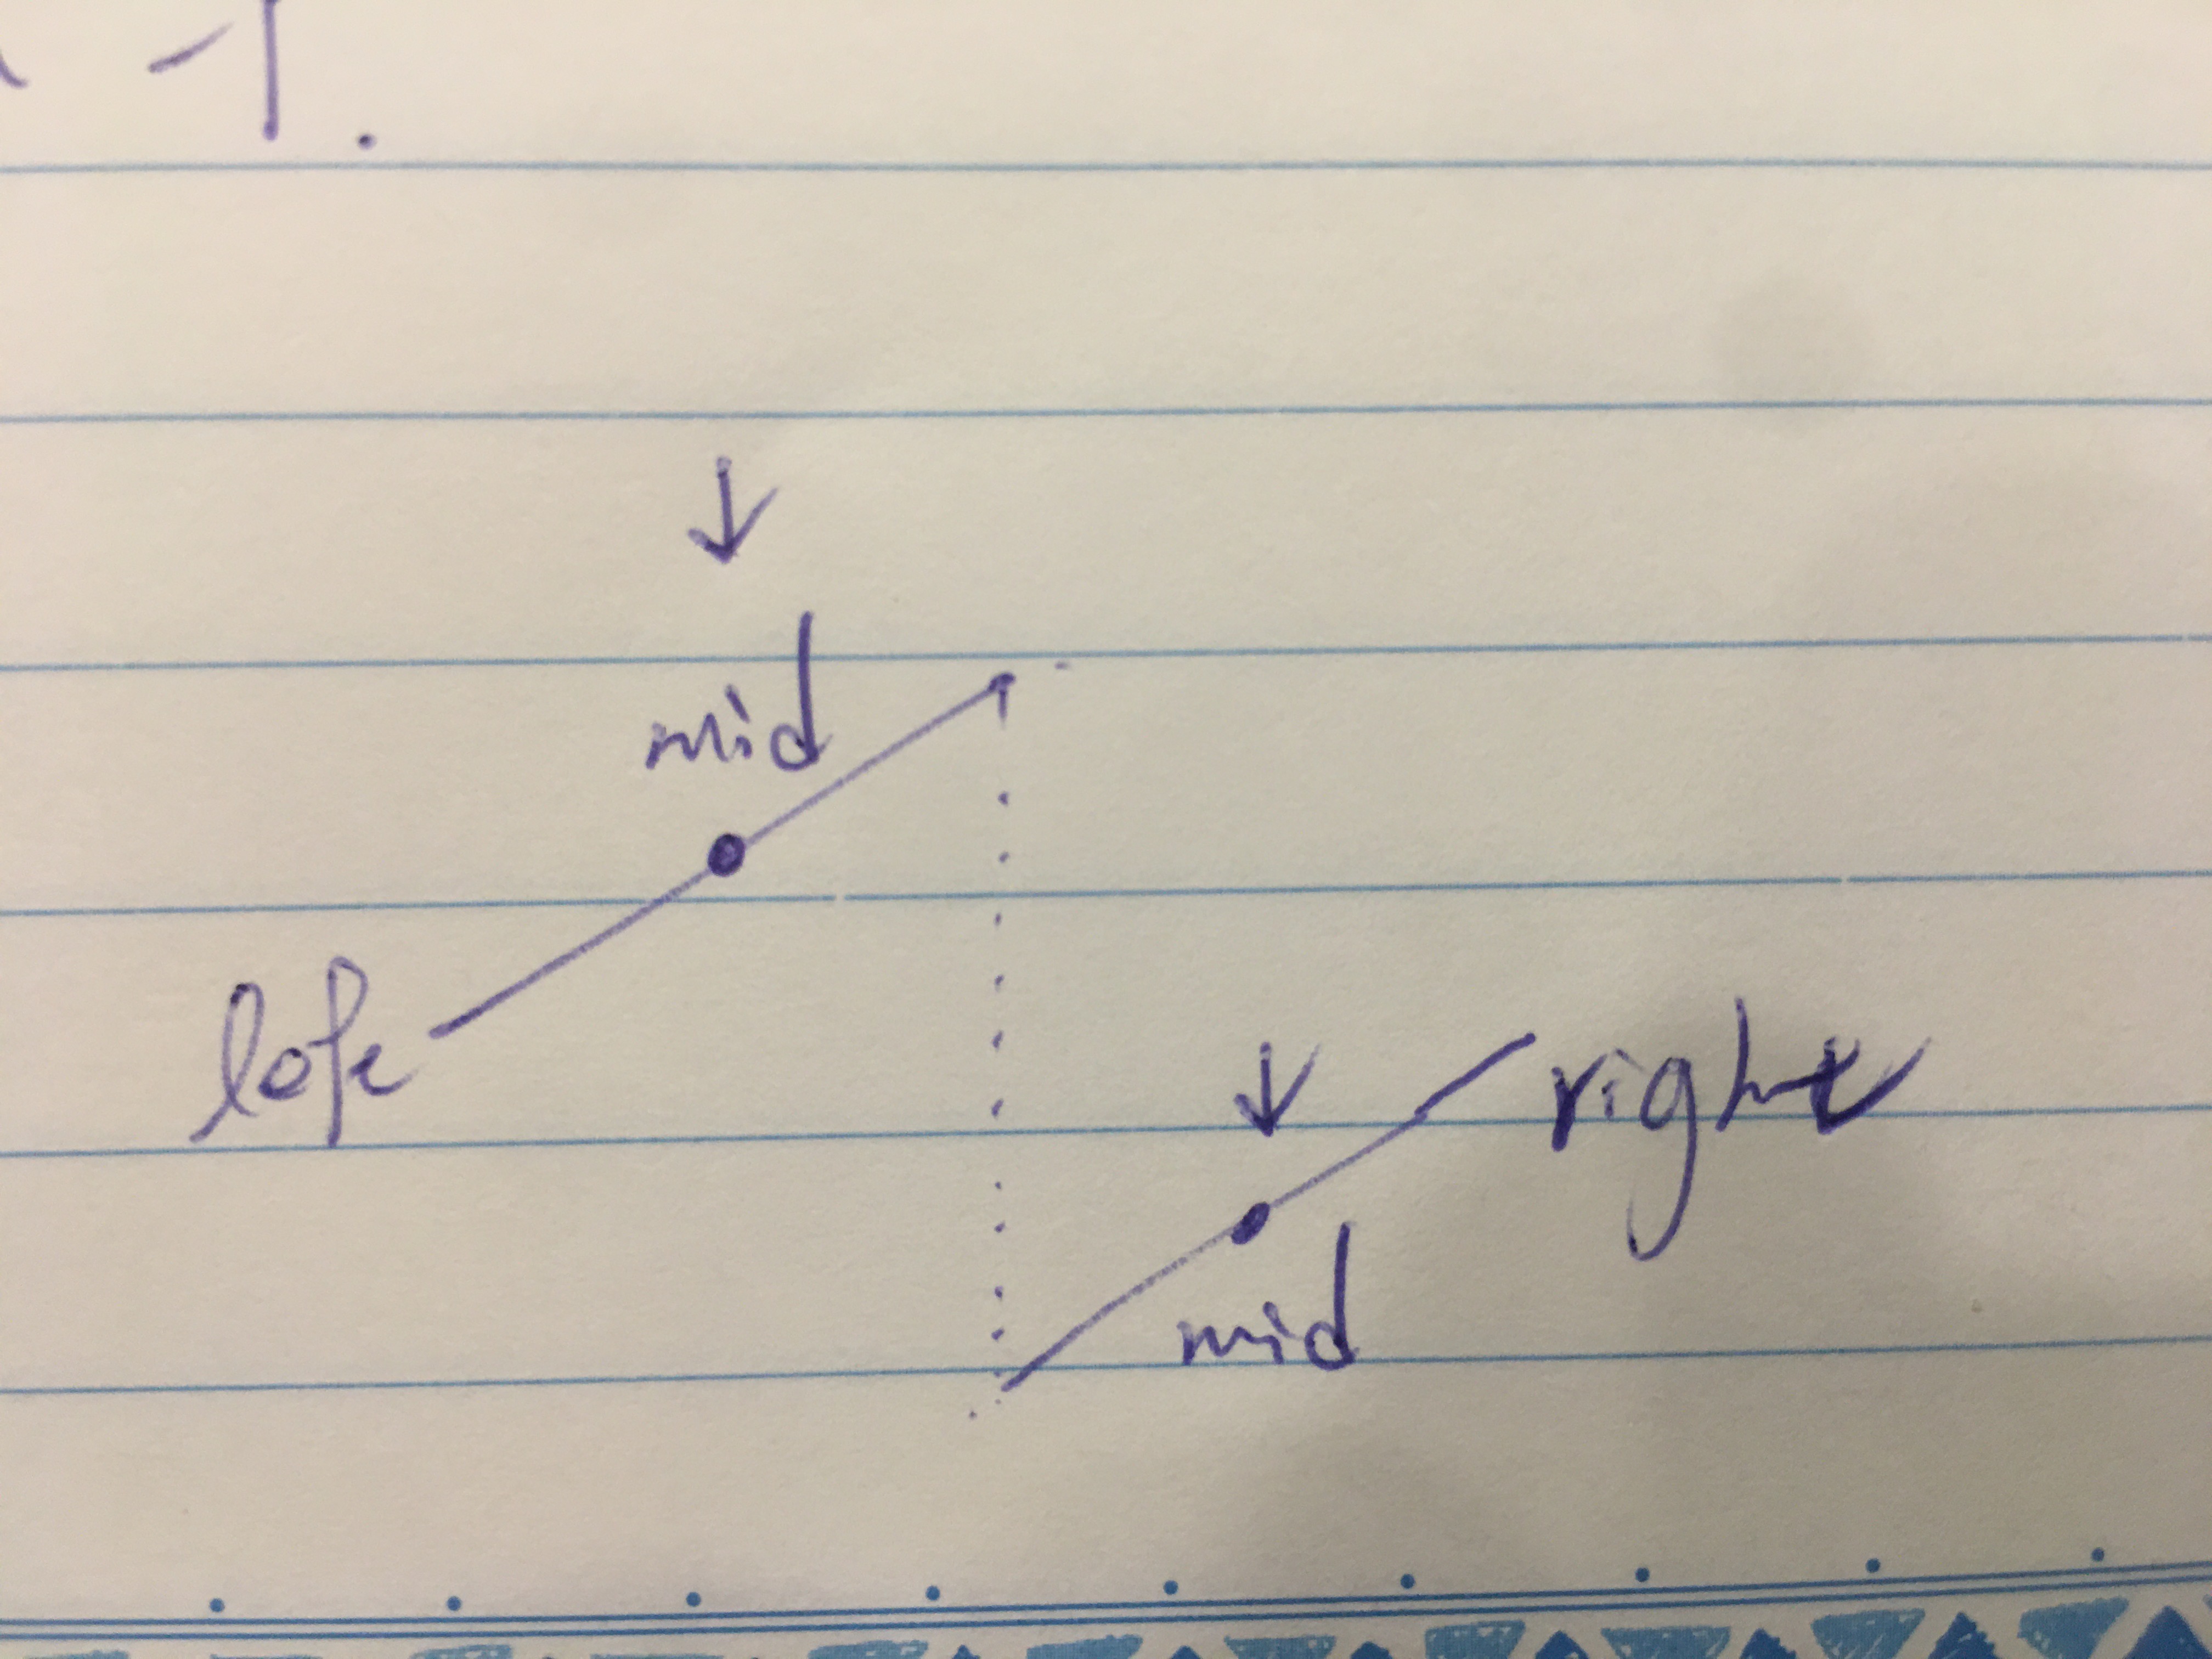 mid
left
right
mid